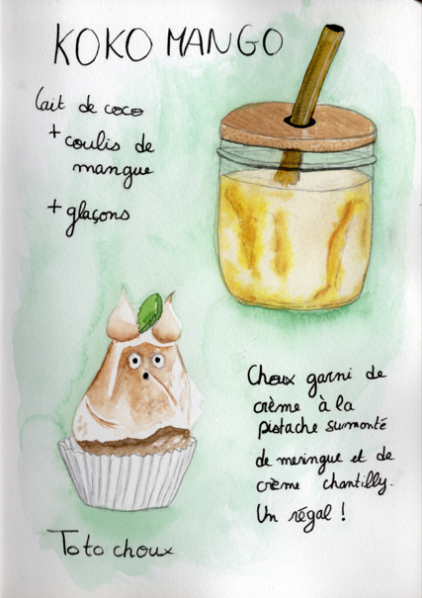 KOKO MANGO
lait de coco
+ coulis de
mangue
+ glaçons
Choux garni de
crème à la
pistache surmonté
de meringue et de
crème chantilly.
Un régal !
Toto choux